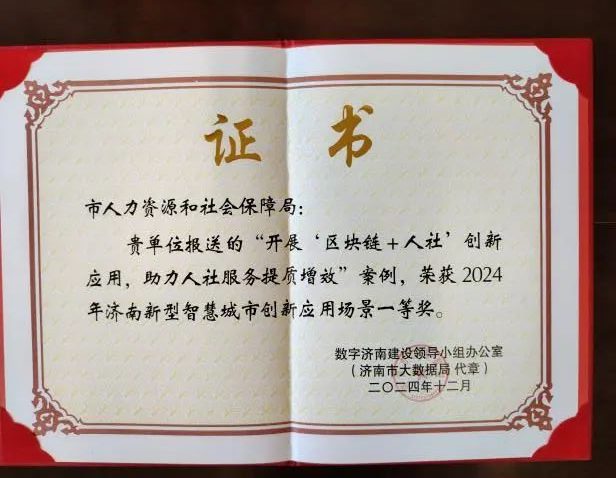 证 书
市人力资源和社会保障局：
贵单位报送的“开展‘区块链+人社’创新
应用，助力人社服务提质增效”案例，荣获 2024
年济南新型智慧城市创新应用场景一等奖。
数字济南建设领导小组办公室
（济南市大数据局 代章）
二〇二四年十二月